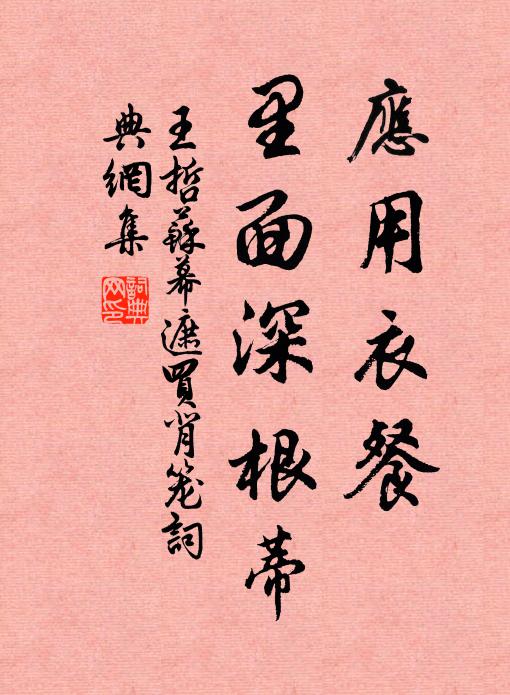 應用衣餐
里面深根蒂
王哲蘇幕遮買背笼詞
典網集
詞典
网印